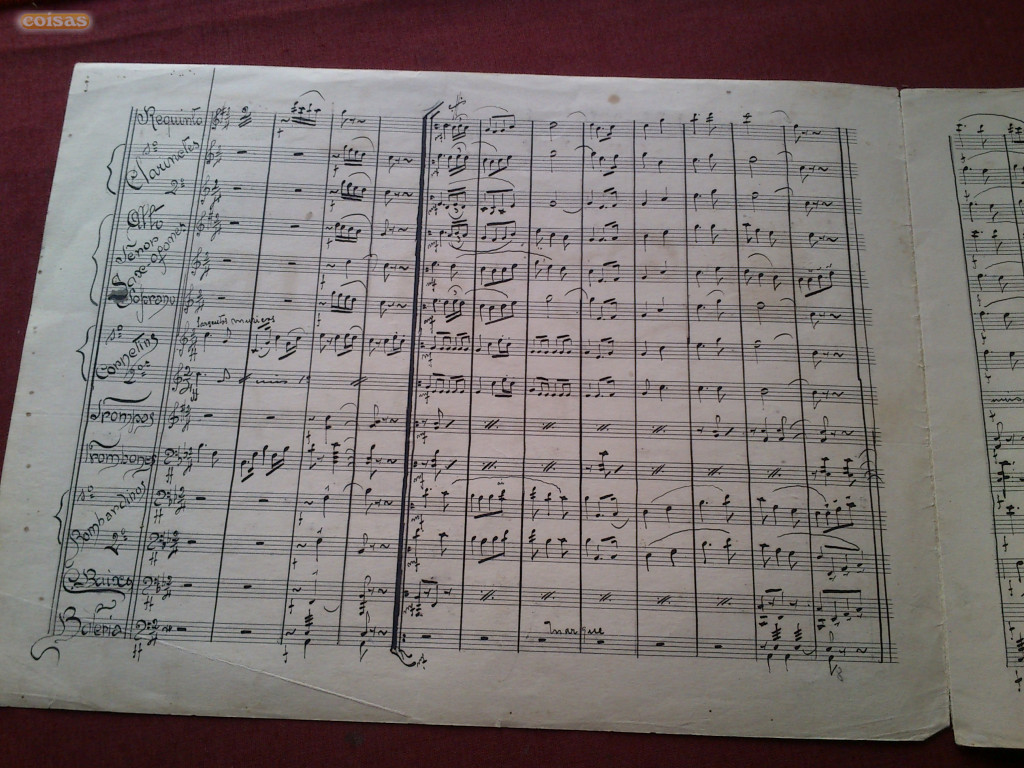 coisas
Requinto
1º
Clarinetes
2º
Alto
Tenor
Saxofones
Soprano
1º
Cornetins
2ºs
Trompas
Trombones
1º
Bombardinos
2º
C. Baixos
Bateria
Marque